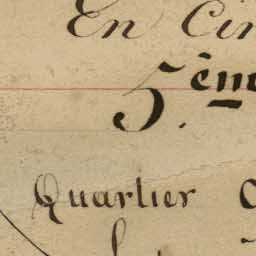 En Cin
5.ème
Quartier